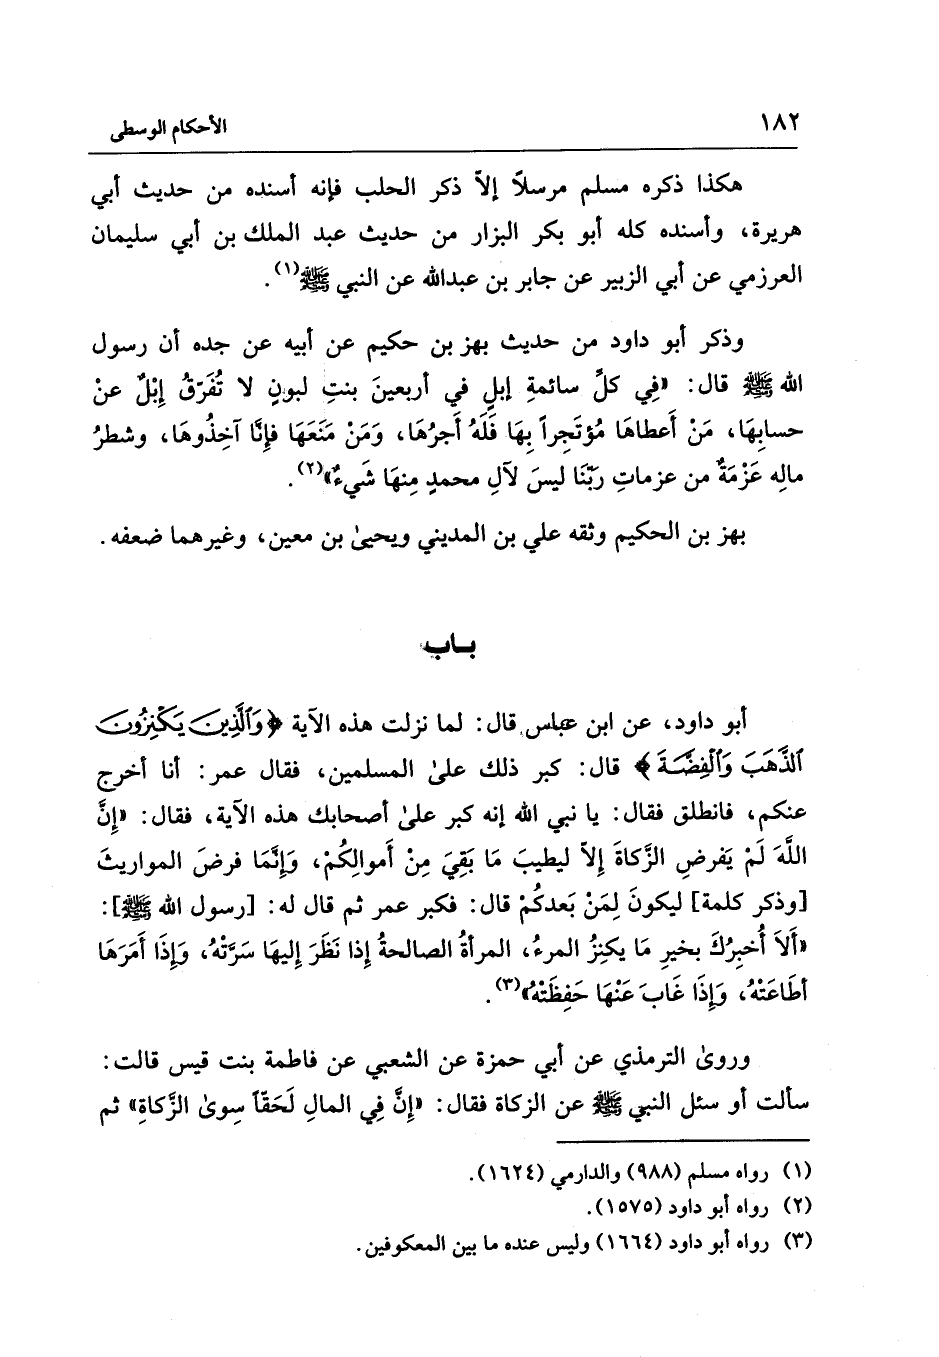 ١٨٢
الأحكام الوسطى
هكذا ذكره مسلم مرسلاً إلاّ ذكر الحلب فإنه أسنده من حديث أبي
هريرة، وأسنده كله أبو بكر البزار من حديث عبد الملك بن أبي سليمان
العرزمي عن أبي الزبير عن جابر بن عبدالله عن النبي ﷺ(١).
وذكر أبو داود من حديث بهز بن حكيم عن أبيه عن جده أن رسول
الله ﷺ قال: «فِي كلِّ سائمةِ إبلٍ في أربعينَ بنتِ لبونٍ لا تُفَرّقُ إبْلٌ عنْ
حسابِهَا، مَنْ أَعطاهَا مُؤتَجراً بِهَا فَلَهُ أجرُهَا، وَمَنْ مَنَعَهَا فإنَّا آخِذُوهَا، وشطرُ
مالِه عَزْمَةٌ من عزماتِ رَبِّنَا ليسَ لآلِ محمدٍ مِنهَا شَيءٌ»(٢).
بهز بن الحكيم وثقه علي بن المديني ويحيىٰ بن معين، وغيرهما ضعفه.
بـاب
أبو داود، عن ابن عباس قال: لما نزلت هذه الآية ﴿وَٱلَّذِينَ يَكْنِزُونَ
ٱلذَّهَبَ وَٱلْفِضَّةَ﴾ قال: كبر ذلك علىٰ المسلمين، فقال عمر: أنا أخرج
عنكم، فانطلق فقال: يا نبي الله إنه كبر علىٰ أصحابك هذه الآية، فقال: «إِنَّ
اللَّهَ لَمْ يَفرضِ الزَّكاةَ إلاّ ليطيبَ مَا بَقِيَ مِنْ أَموالِكُمْ، وَإِنَّمَا فرضَ المواريثَ
[وذكر كلمة] ليكونَ لِمَنْ بَعدكُمْ قال: فكبر عمر ثم قال له: [رسول الله ﷺ]:
«أَلاَ أُخبِرُكَ بخيرِ مَا يكنِزُ المرءُ، المرأةُ الصالحةُ إذا نَظَرَ إليهَا سَرَّتْهُ، وَإِذَا أَمَرَهَا
أطَاعَتْهُ، وَإِذَا غَابَ عَنْهَا حَفِظَتْهُ»(٣).
وروىٰ الترمذي عن أبي حمزة عن الشعبي عن فاطمة بنت قيس قالت:
سألت أو سئل النبي ﷺ عن الزكاة فقال: «إِنَّ فِي المالِ لَحَقاً سوىٰ الزَّكاةِ» ثم
(١) رواه مسلم (٩٨٨) والدارمي (١٦٢٤).
(٢) رواه أبو داود (١٥٧٥).
(٣) رواه أبو داود (١٦٦٤) وليس عنده ما بين المعكوفين.